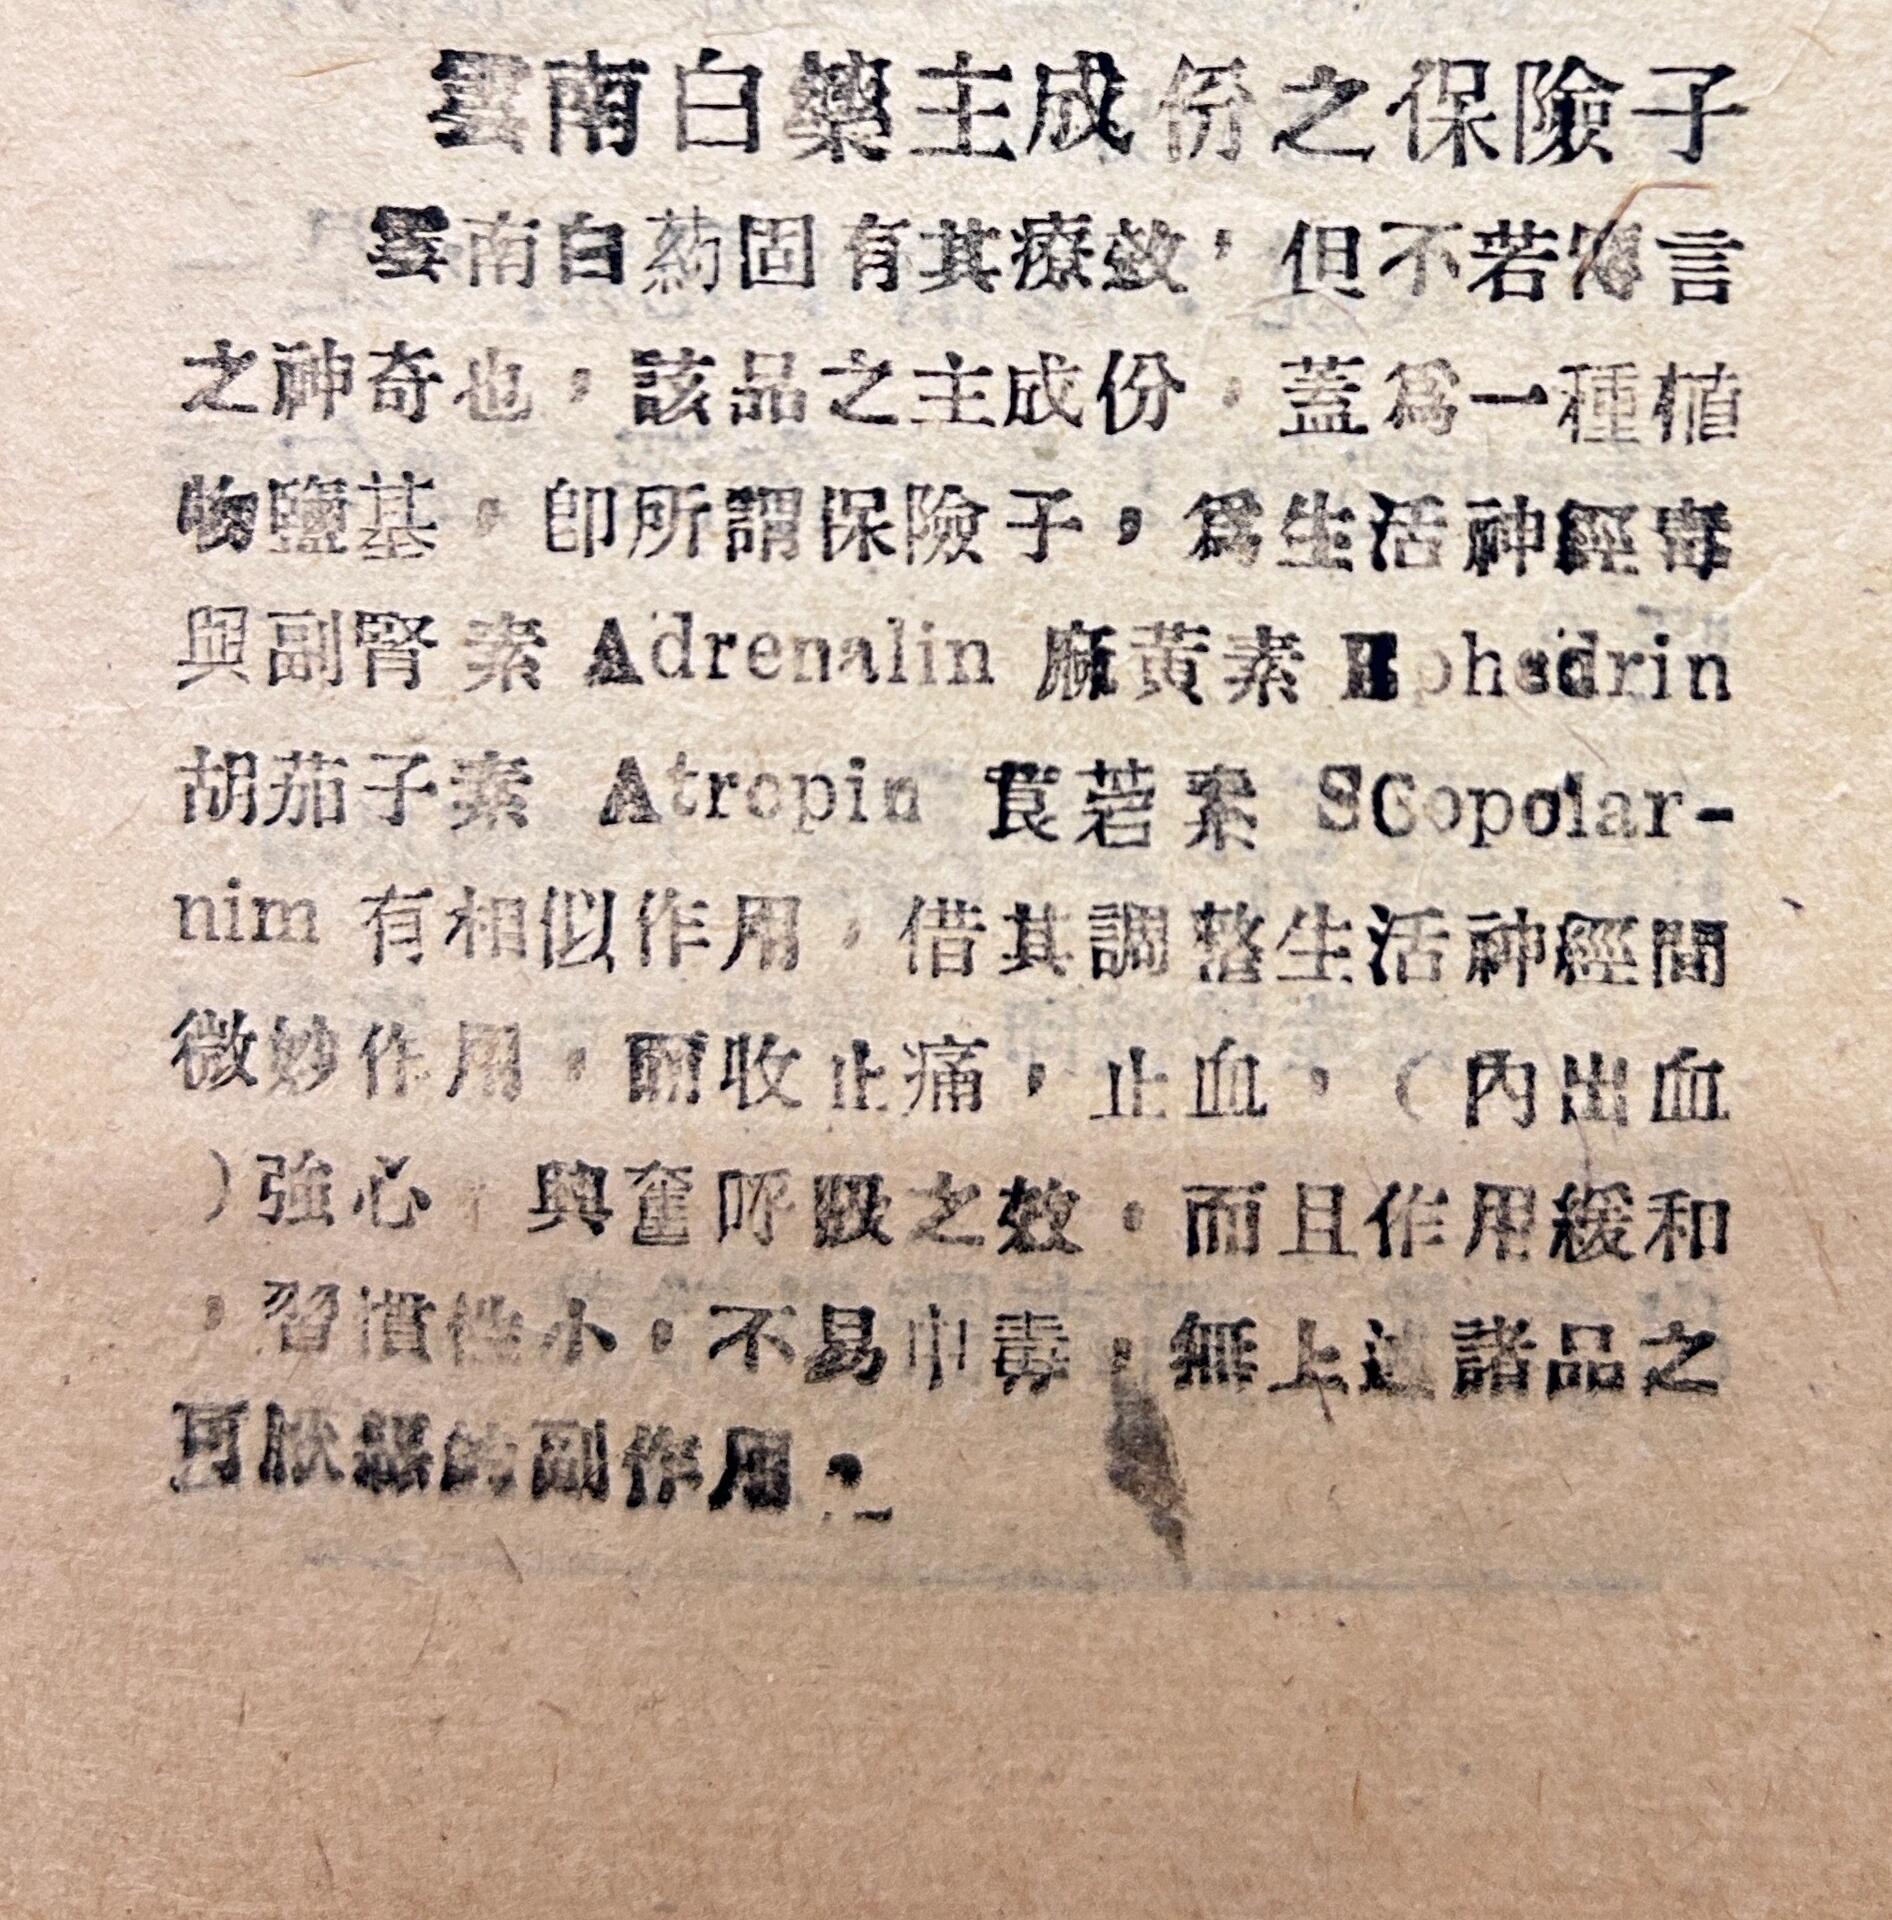 雲南白藥主成份之保險子
雲南白葯固有其療效，但不若傳言
之神奇也，該品之主成份，蓋爲一種植
物鹽基，卽所謂保險子，爲生活神經毒
與副腎素 Adrenalin 麻黄素 Ephedrin
胡茄子素 Atropin 莨菪素 SCopolar-
nim 有相似作用，借其調整生活神經間
微妙作用，而收止痛，止血，（內出血
）強心，興奮呼吸之效。而且作用緩和
，習慣性小，不易中毒，無上述諸品之
可厭的副作用。